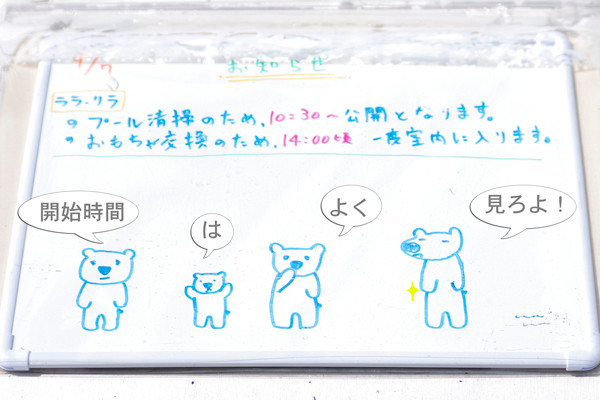 4/7
お知らせ
ララ・リラ
プール清掃のため、10:30～公開となります。
おもちゃ交換のため、14:00頃 一度室内に入ります。
開始時間
は
よく
見ろよ!